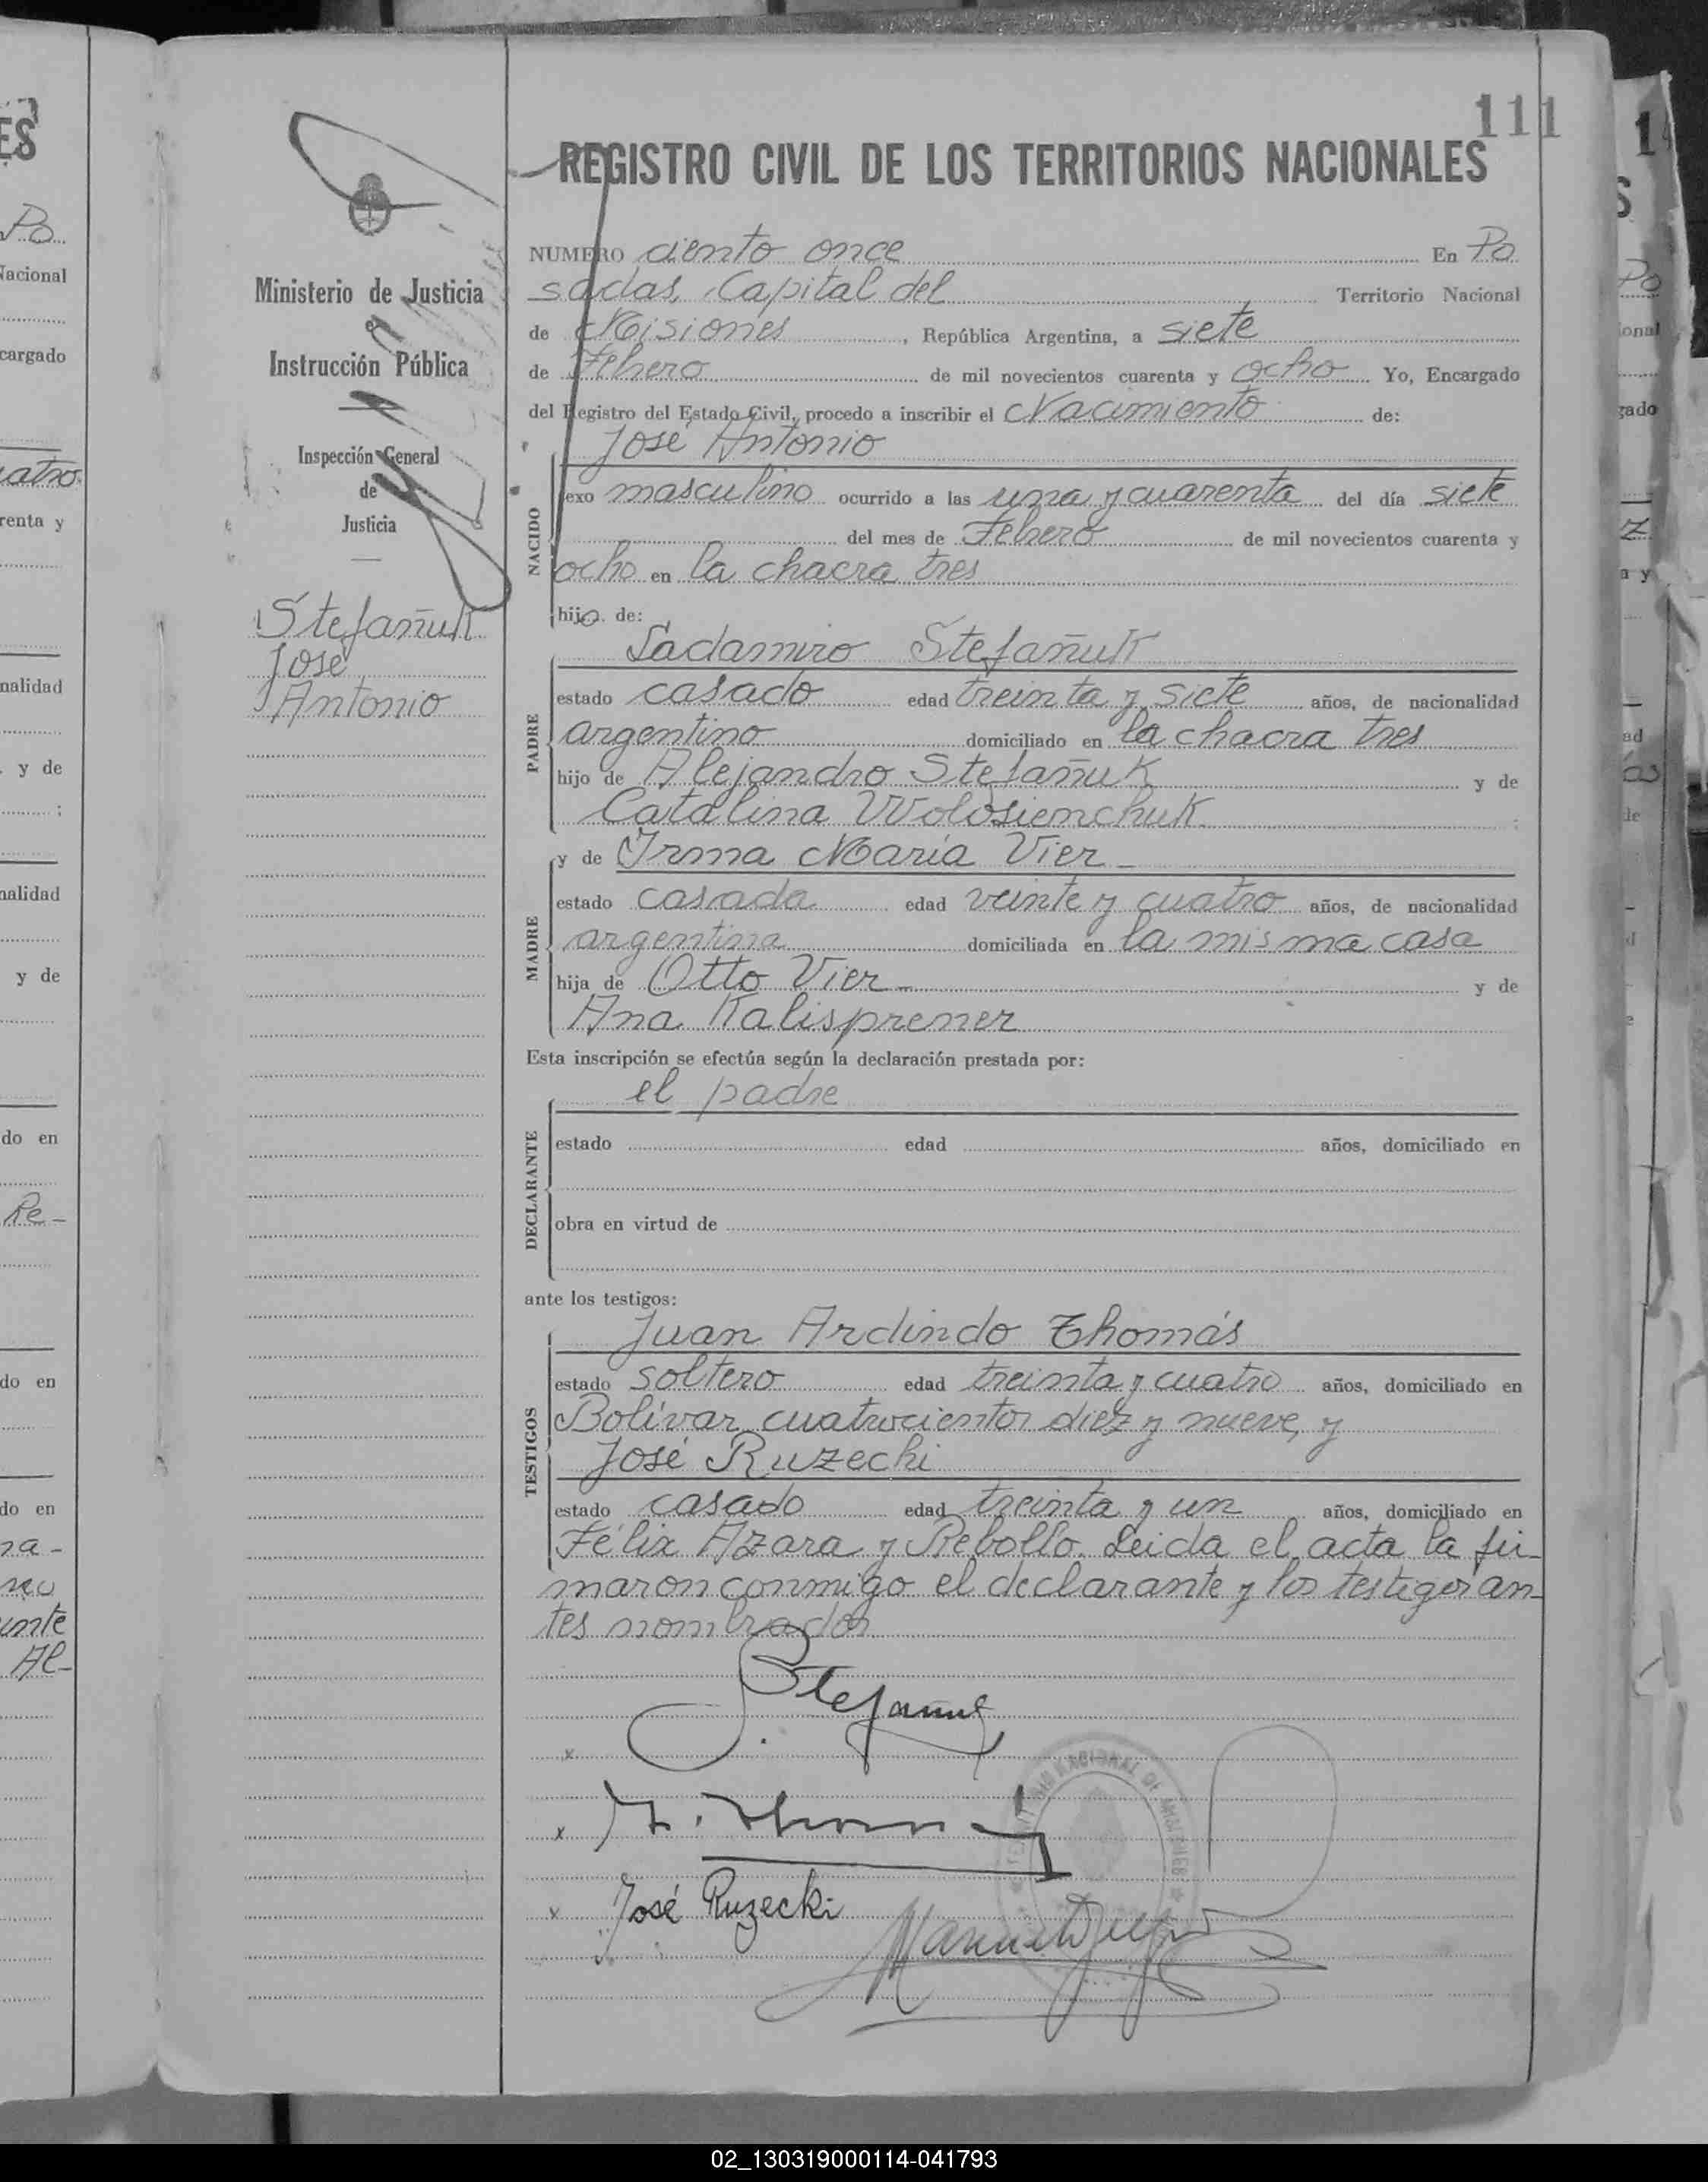 111
REGISTRO CIVIL DE LOS TERRITORIOS NACIONALES
Ministerio de Justicia
e
Instrucción Pública
Inspección General
de
Justicia
Stefañuk
José
Antonio
NUMERO ciento once En Po
sadas, Capital del Territorio Nacional
de Misiones, República Argentina, a siete
de Febrero de mil novecientos cuarenta y ocho Yo, Encargado
del Registro del Estado Civil, procedo a inscribir el Nacimiento de:
José Antonio
NACIDO
sexo masculino ocurrido a las una y cuarenta del día siete
del mes de Febrero de mil novecientos cuarenta y
ocho en la chacra tres
hijo de:
Ladamiro Stefañuk
PADRE
estado casado edad treinta y siete años, de nacionalidad
argentino domiciliado en la chacra tres
hijo de Alejandro Stefañuk y de
Catalina Wolosienchuk ;
y de Irma María Vier -
MADRE
estado casada edad veinte y cuatro años, de nacionalidad
argentina domiciliada en la misma casa
hija de Otto Vier - y de
Ana Kalisprener
Esta inscripción se efectúa según la declaración prestada por:
el padre
DECLARANTE
estado edad años, domiciliado en
obra en virtud de
ante los testigos:
Juan Ardindo Thomás
TESTIGOS
estado soltero edad treinta y cuatro años, domiciliado en
Bolívar cuatrocientos diez y nueve, y
José Ruzechi
estado casado edad treinta y un años, domiciliado en
Félix Azara y Rebollo. Leida el acta la fir-
maron conmigo el declarante y los testigos an-
tes nombrados
Stefañuk
José Ruzecki
02_130319000114-041793